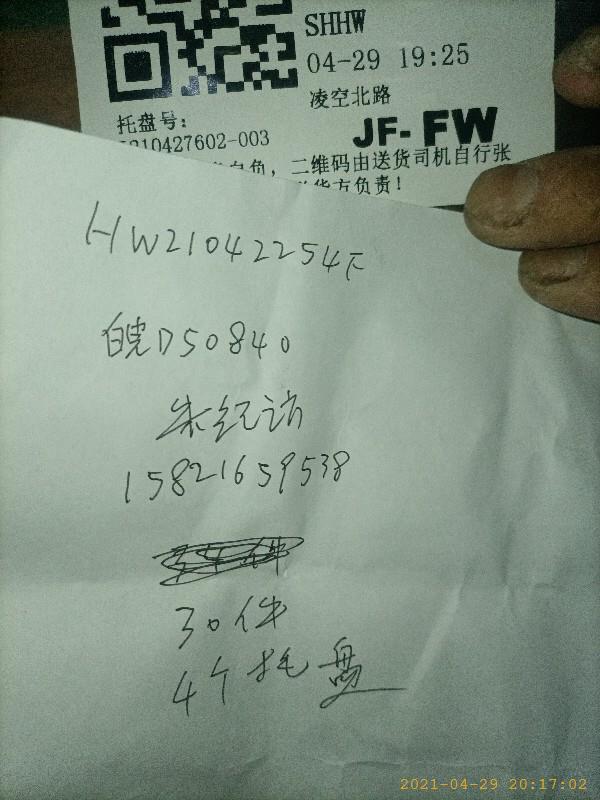 SHHW
04-29 19:25
凌空北路
托盘号:
210427602-003
JF-FW
自负，二维码由送货司机自行张
货方负责！
HW21042254F
皖D50840
朱纪访
15821659538
30件
4个托盘
2021-04-29 20:17:02